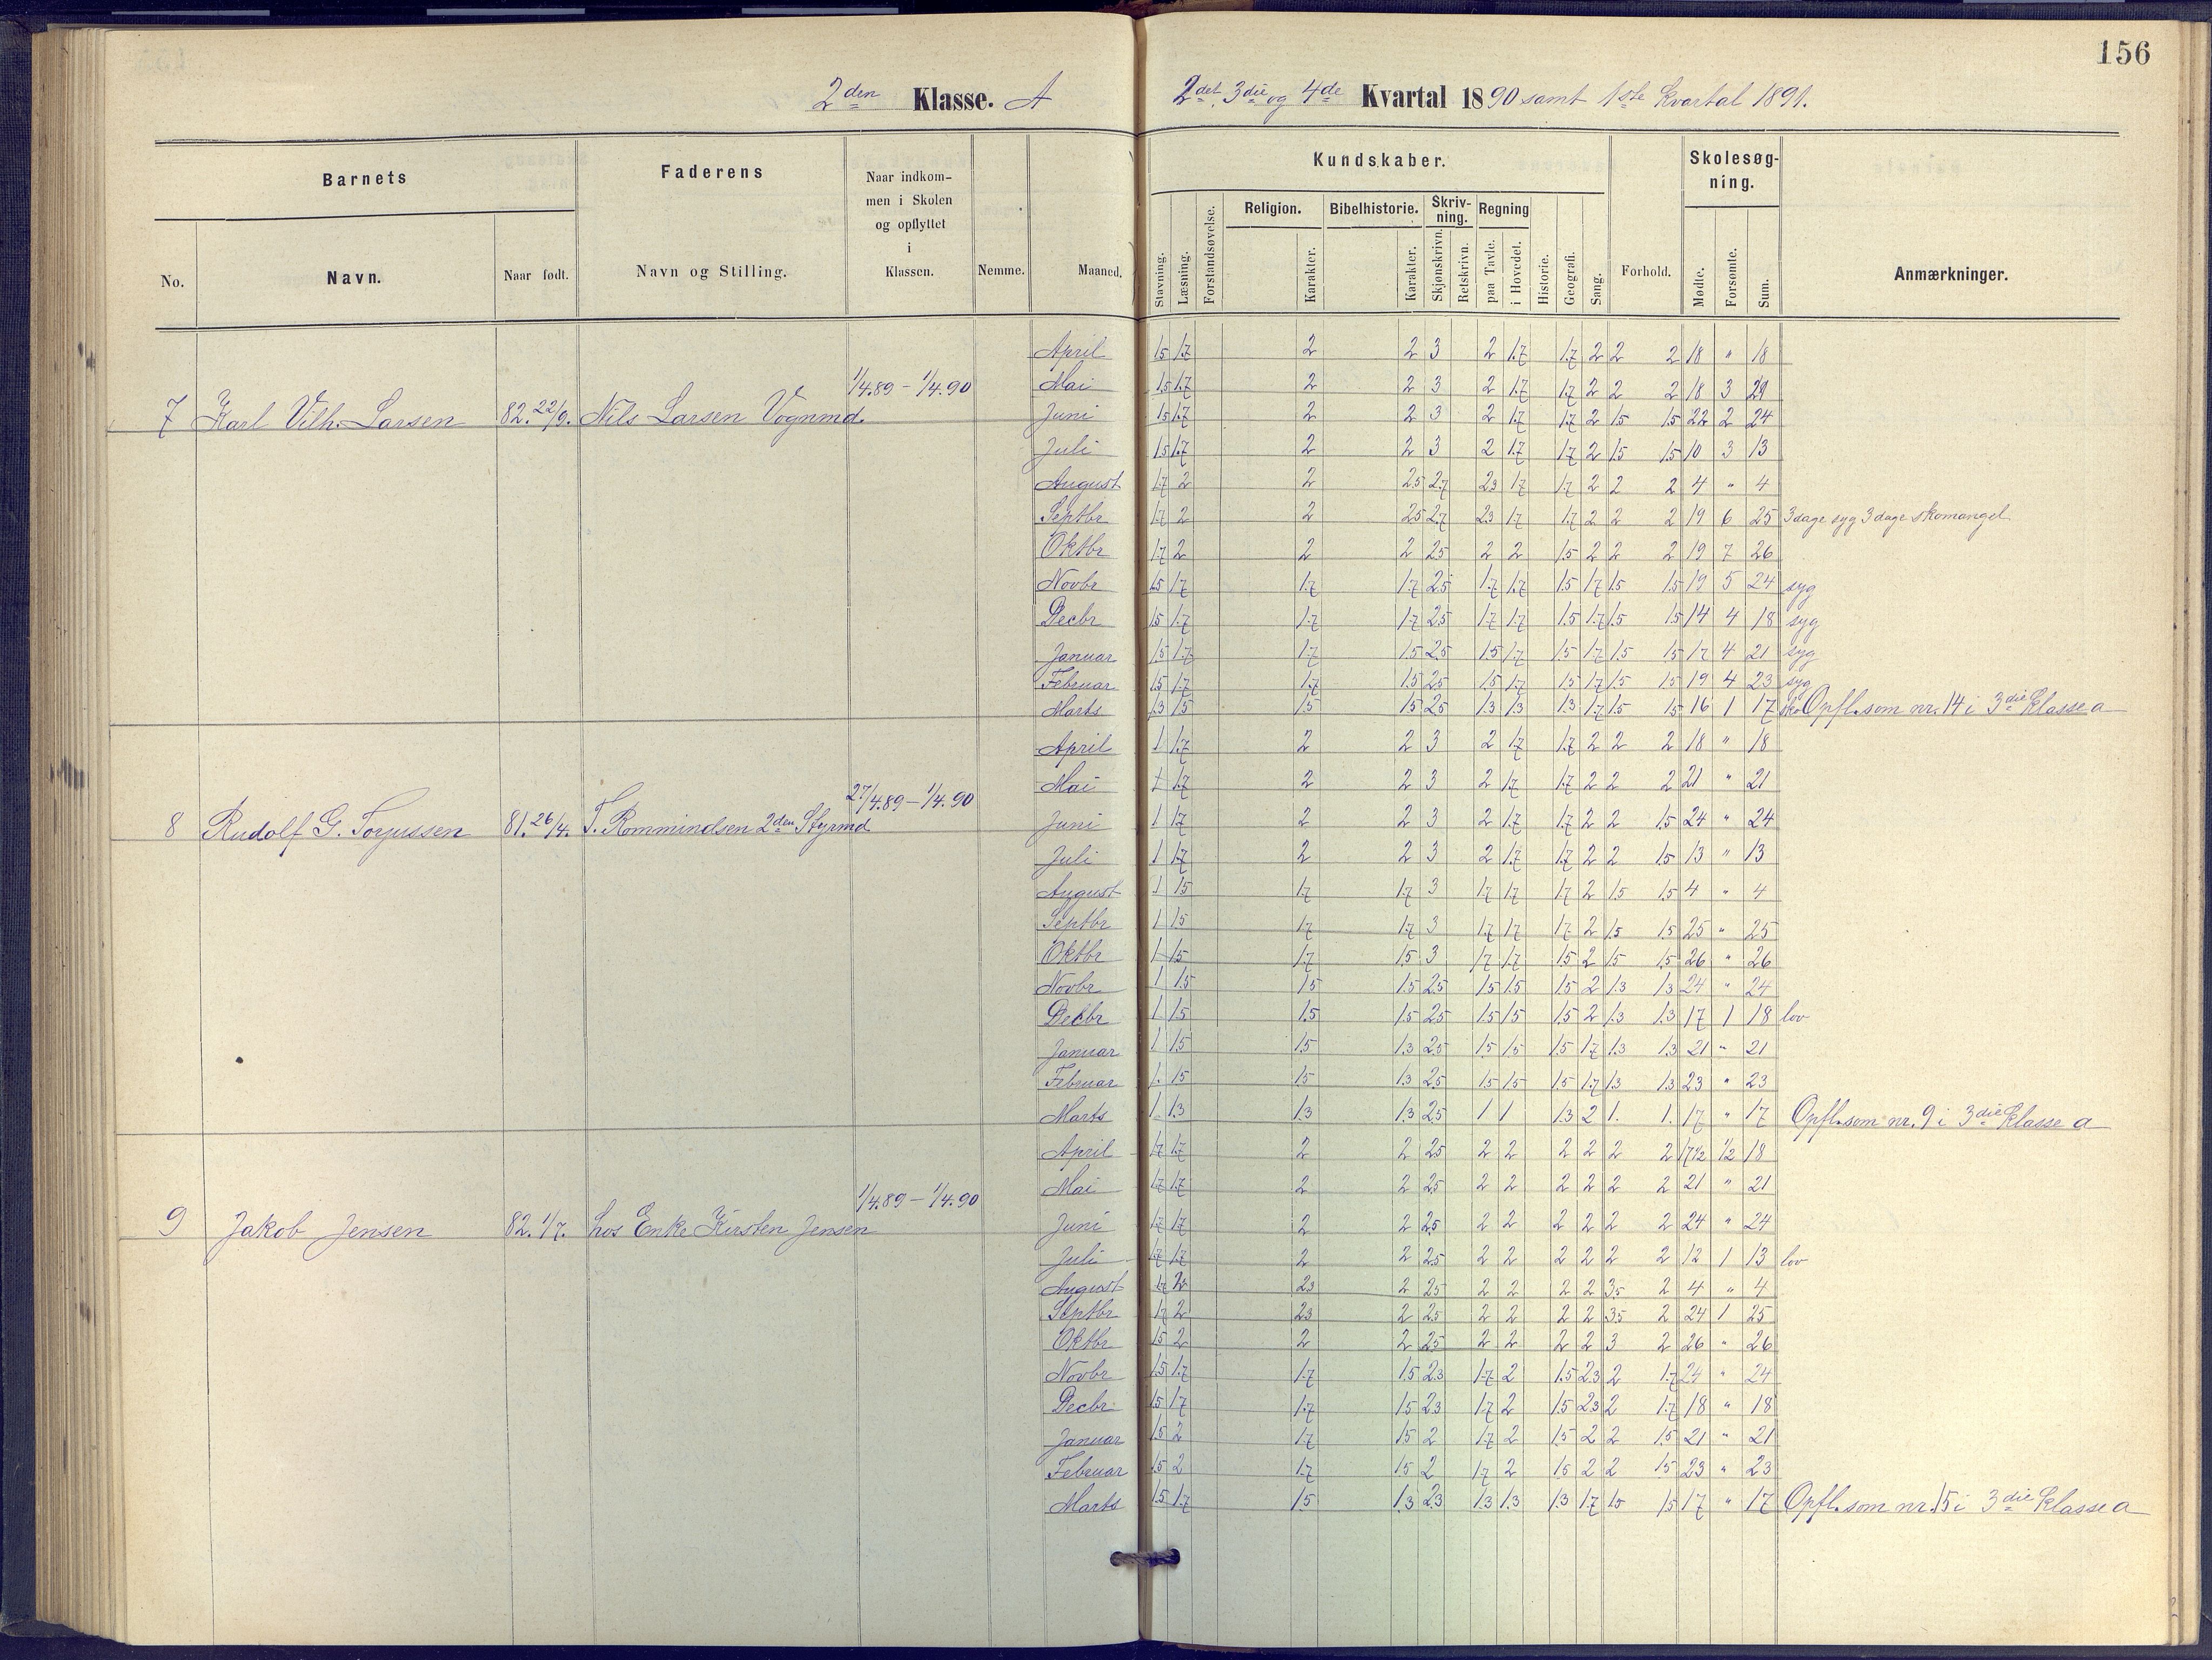 156
2den Klasse. A 2det, 3die og 4de Kvartal 1890 samt 1ste Kvartal 1891.
Barnets Faderens Naar indkommen i Skolen og opflyttet i Klassen. Nemme. Maaned. Kundskaber. Forhold. Skolesøgning. Anmærkninger.
No. Navn. Naar født. Navn og Stilling. Stavning. Læsning. Forstandsøvelse. Religion. Karakter. Bibelhistorie. Karakter. Skrivning. Skjønskrivn. Retskrivn. Regning paa Tavle. i Hovedet. Historie. Geografi. Sang. Mødte. Forsømte. Sum.
7 Karl Vilh. Larsen 82. 22/9. Nils Larsen Vognmd. 1/4.89 – 1/4.90
April 1.5 1.7 2 2 3 2 1.7 1.7 2 2 2 18 " 18
Mai 1.5 1.7 2 2 3 2 1.7 1.7 2 2 2 18 3 21
Juni 1.5 1.7 2 2 3 2 1.7 1.7 2 1.5 1.5 22 2 24
Juli 1.5 1.7 2 2 3 2 1.7 1.7 2 1.5 1.5 10 3 13
August 1.7 2 2 2.5 2.7 2.3 1.7 1.7 2 2 2 4 " 4
Septbr 1.7 2 2 2.5 2.7 2.3 1.7 1.7 2 2 2 19 6 25 3 dage syg 3 dage skomangel
Oktbr 1.7 2 2 2 2.5 2 2 1.5 2 2 2 19 7 26
Novbr 1.5 1.7 1.7 1.7 2.5 1.7 1.7 1.5 1.7 1.5 1.5 19 5 24 syg
Decbr 1.5 1.7 1.7 1.7 2.5 1.7 1.7 1.5 1.7 1.5 1.5 14 4 18 syg
Januar 1.5 1.7 1.7 1.5 2.5 1.5 1.7 1.5 1.7 1.5 1.5 17 4 21 syg
Februar 1.5 1.7 1.7 1.5 2.5 1.5 1.7 1.5 1.7 1.5 1.5 19 4 23 syg
Marts 1.3 1.5 1.5 1.5 2.5 1.3 1.3 1.3 1.7 1.5 1.5 16 1 17 sko Opfl. som nr. 14 i 3die Klasse a
8 Rudolf G. Torjussen 81. 26/4. T. Rommindsen 2den Styrmd 27/4.89 – 1/4.90
April 1 1.7 2 2 3 2 1.7 1.7 2 2 2 18 " 18
Mai 1 1.7 2 2 3 2 1.7 1.7 2 2 2 21 " 21
Juni 1 1.7 2 2 3 2 1.7 1.7 2 2 1.5 24 " 24
Juli 1 1.7 2 2 3 2 1.7 1.7 2 2 1.5 13 " 13
August 1 1.5 1.7 1.7 3 1.7 1.7 1.7 2 1.5 1.5 4 " 4
Septbr 1 1.5 1.7 1.7 3 1.7 1.7 1.7 2 1.5 1.5 25 " 25
Oktbr 1 1.5 1.7 1.5 3 1.7 1.7 1.5 2 1.5 1.5 26 " 26
Novbr 1 1.5 1.5 1.5 2.5 1.5 1.5 1.5 2 1.3 1.3 24 " 24
Decbr 1 1.5 1.5 1.5 2.5 1.5 1.5 1.5 2 1.3 1.3 17 1 18 lov
Januar 1 1.5 1.5 1.3 2.5 1.5 1.5 1.5 1.7 1.3 1.3 21 " 21
Februar 1. 1.5 1.5 1.3 2.5 1.5 1.5 1.5 1.7 1.3 1.3 23 " 23
Marts 1 1.3 1.3 1.3 2.5 1 1 1.3 2 1. 1. 17 " 17 Opfl. som nr. 9 i 3die Klasse a
9 Jakob Jensen 82. 1/7. hos Enke Kirsten Jensen 1/4.89 – 1/4.90
April 1.7 1.7 2 2 2.5 2 2 2 2 2 2 17 1/2 1/2 18
Mai 1.7 1.7 2 2 2.5 2 2 2 2 2 2 21 " 21
Juni 1.7 1.7 2 2 2.5 2 2 2 2 2 2 24 " 24
Juli 1.7 1.7 2 2 2.5 2 2 2 2 2 2 12 1 13 lov
August 1.7 2 2.3 2 2.5 2 2 2 2 3.5 2 4 " 4
Septbr 1.7 2 2.3 2 2.5 2 2 2 2 3.5 2 24 1 25
Oktbr 1.5 2 2 2 2.5 2 2 2 2 3 2 26 " 26
Novbr 1.5 1.7 1.7 1.5 2.3 1.7 2 1.5 2.3 2 1.7 24 " 24
Decbr 1.5 1.7 1.7 1.5 2.3 1.7 2 1.5 2.3 2 1.7 18 " 18
Januar 1.5 2 1.7 1.5 2 1.7 2 1.5 2 2 1.5 21 " 21
Februar 1.5 2 1.7 1.5 2 1.7 2 1.5 2 2 1.5 23 " 23
Marts 1.5 1.7 1.5 1.3 2.3 1.3 1.3 1.3 1.7 1.5 1.5 17 " 17 Opfl. som nr. 15 i 3die Klasse a